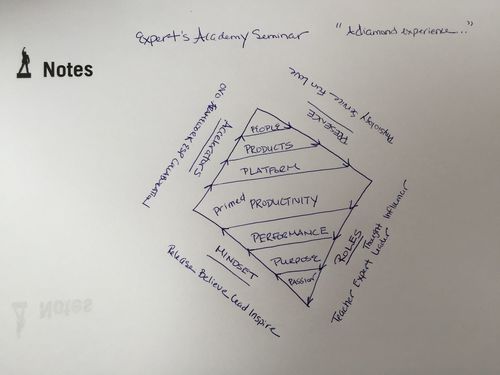 Expert's Academy Seminar "A diamond experience..."
Notes
Physiology Service Fun Love
PRESENCE
Accelerators
PEOPLE
PRODUCTS
PLATFORM
primed PRODUCTIVITY
PERFORMANCE
PURPOSE
PASSION
MINDSET
Release Believe Lead Inspire
ROLES
Thought Influencer
Teacher Expert Leader
Notes